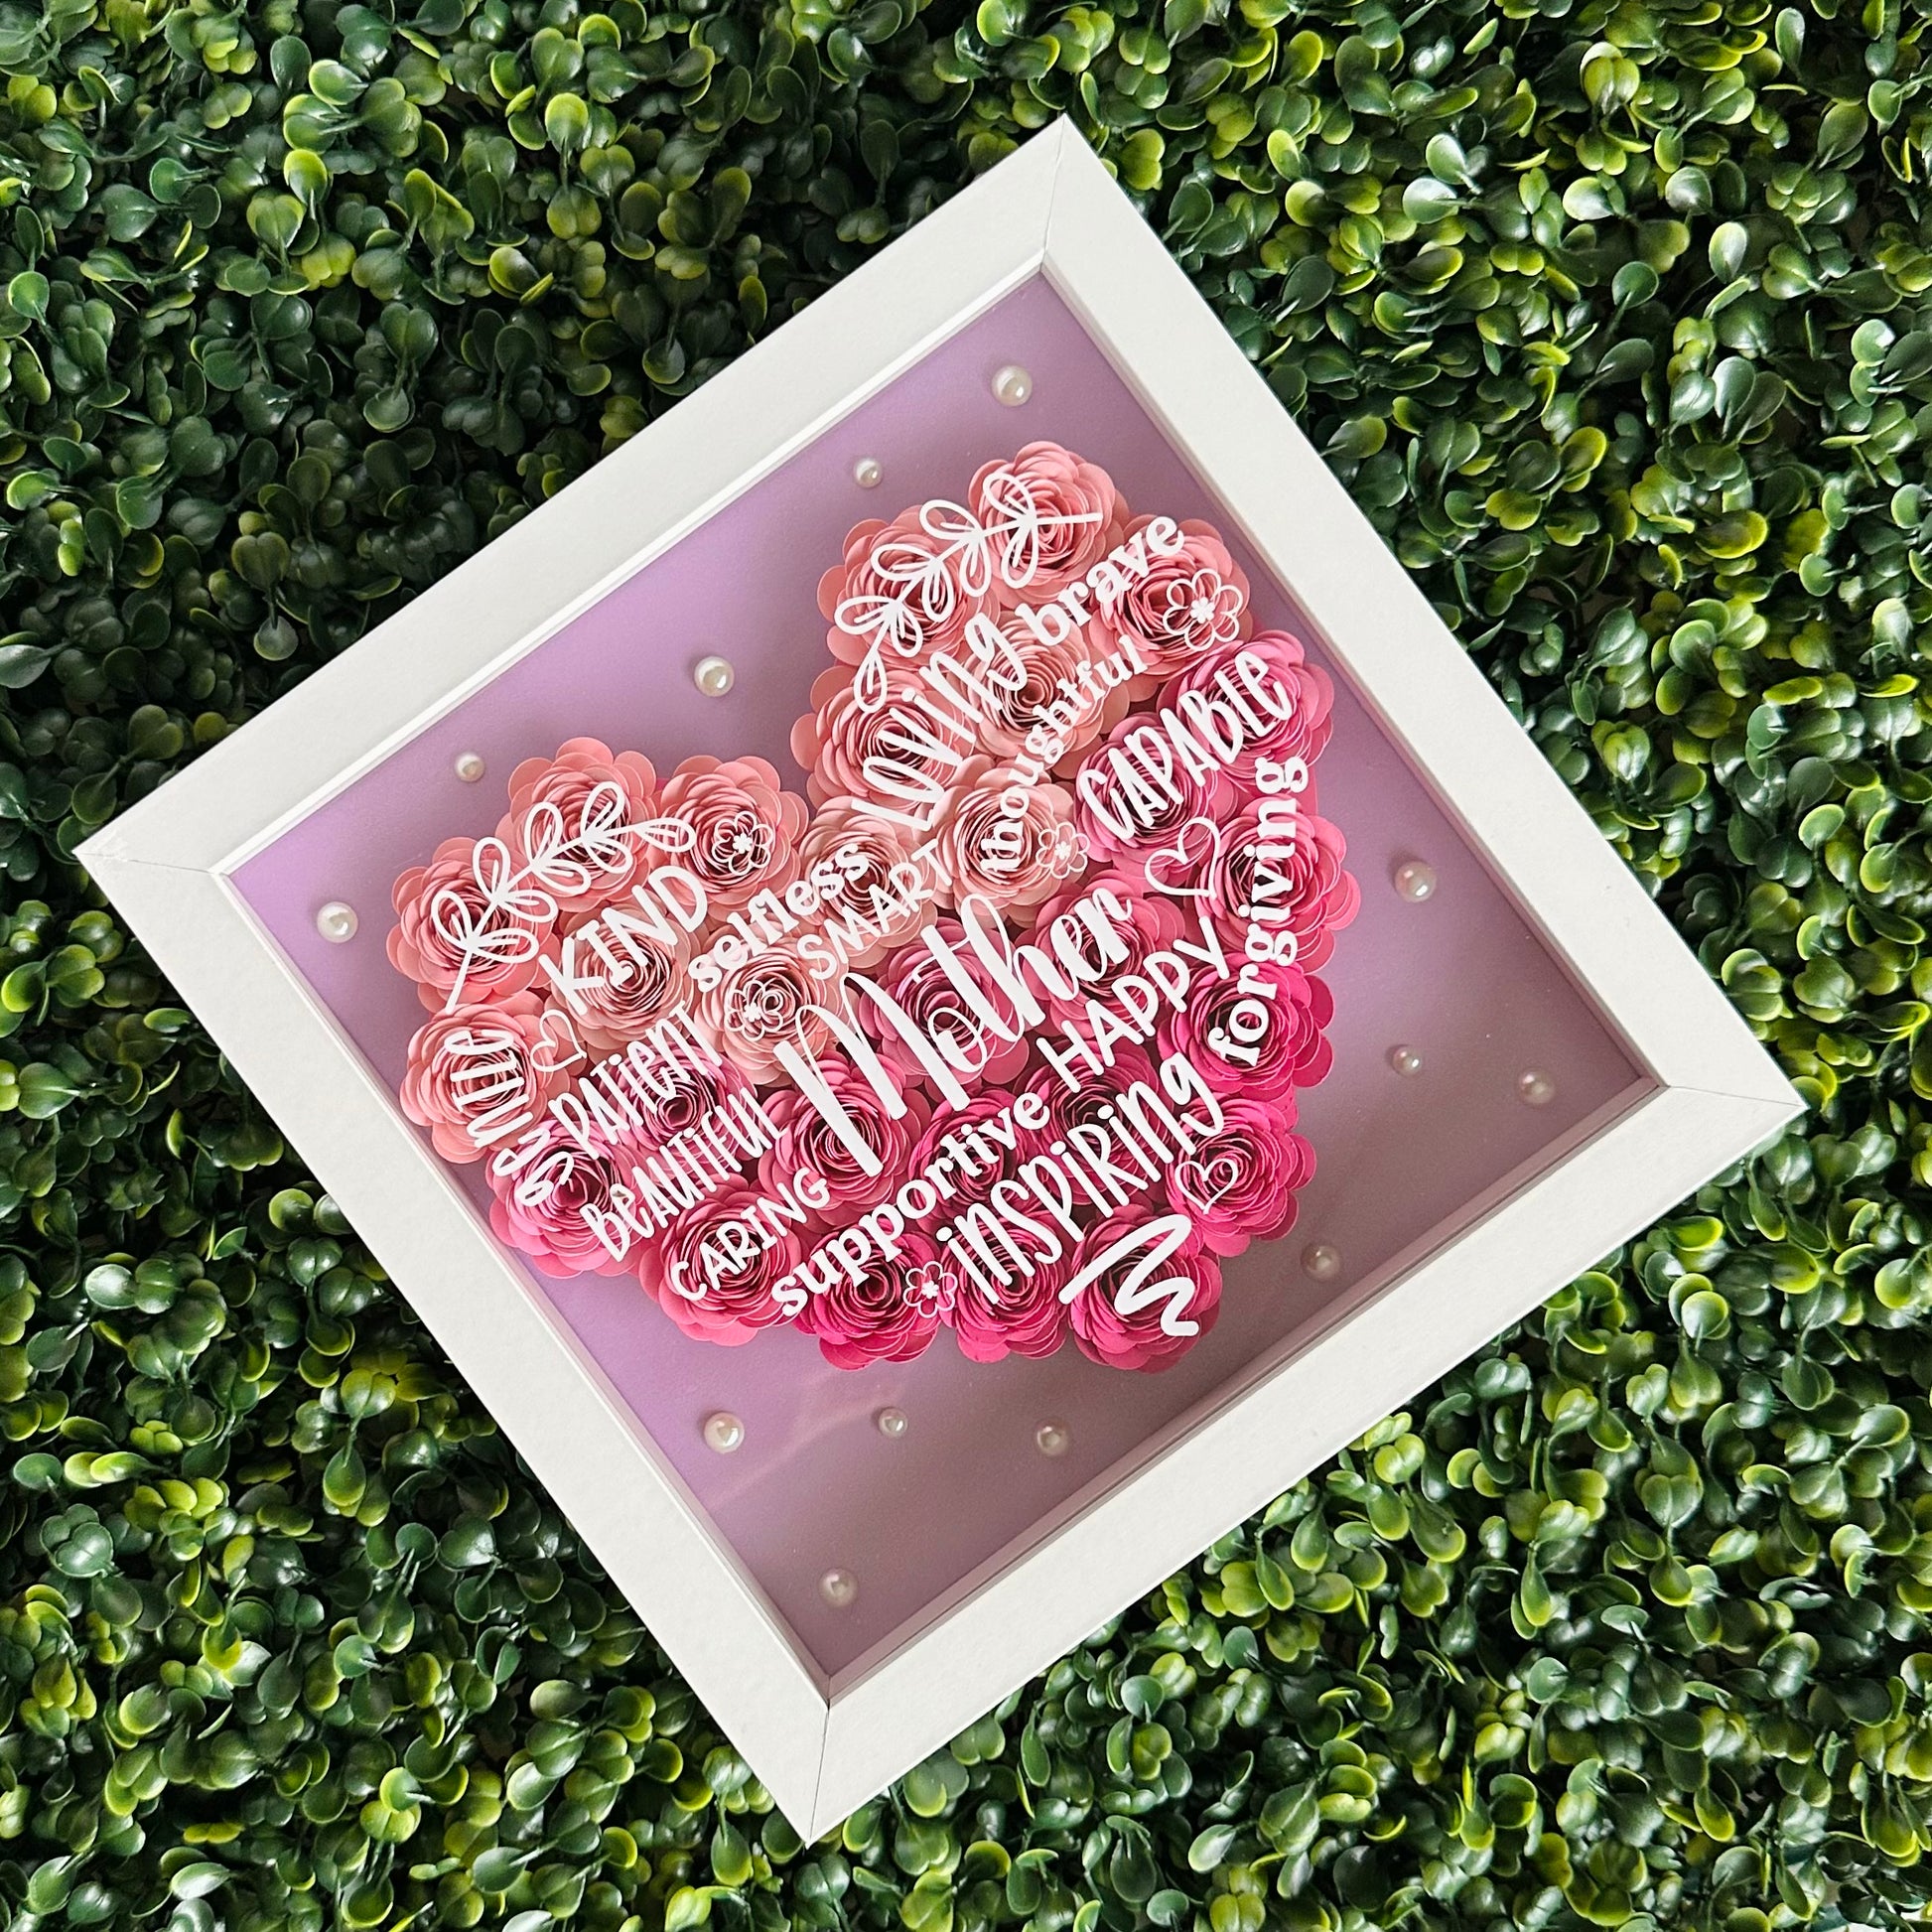 KIND
selfless
SMART
LOVING
brave
thoughtful
CAPABLE
PATIENT
BEAUTIFUL
CARING
Mother
HAPPY
forgiving
supportive
INSPIRING